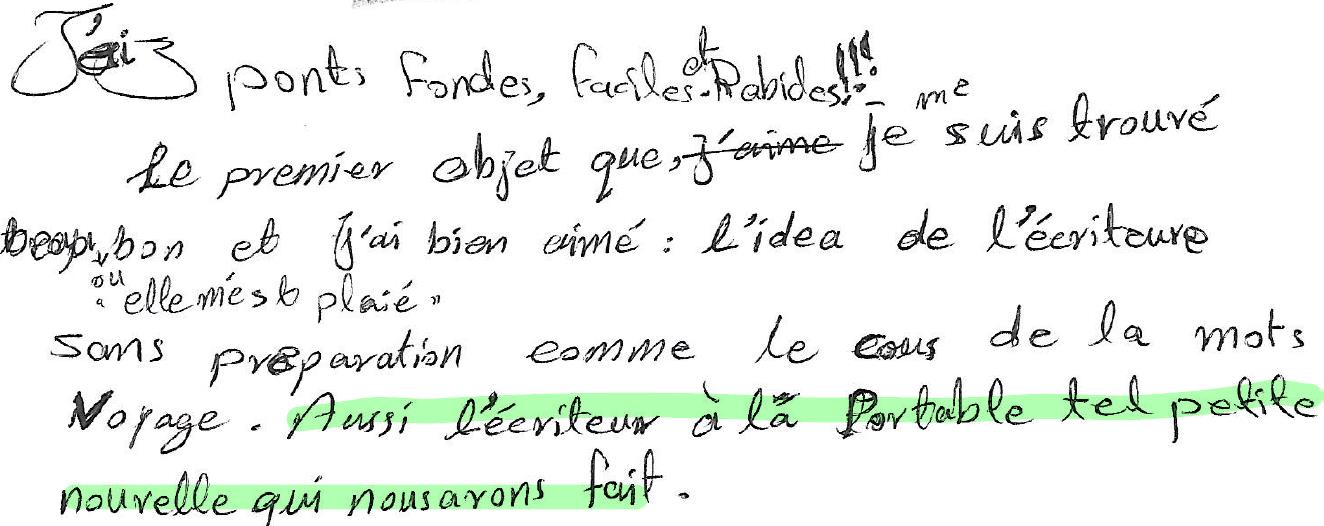 J'ai 3 ponts fondes, faciles et Rabides!!!
Le premier objet que, j'aime je me suis trouvé
bon et j'ai bien aimé : l'idea de l'écriteure
ou "elle m'est plaié"
sans préparation comme le cous de la mots
Voyage. Aussi l'écriteur à la Portable tel petite
nouvelle qui nousavons fait.